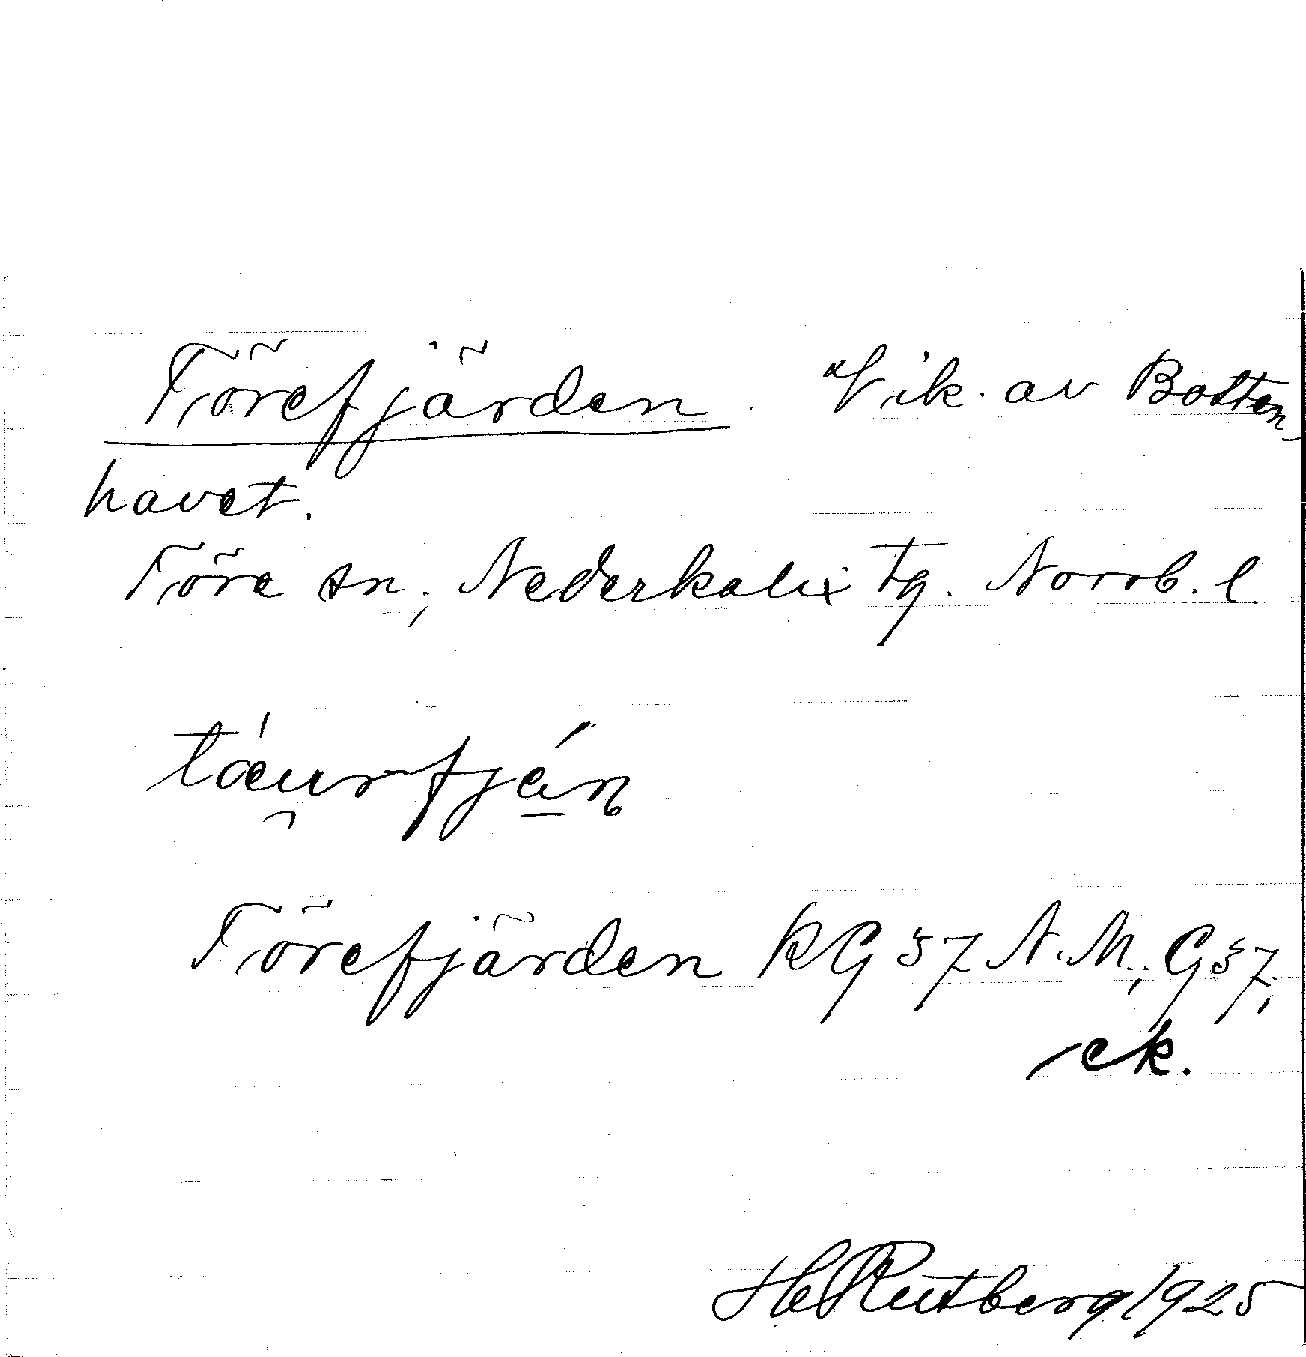 Törefjärden. Vik. av Botten-
havet.
Töre sn; Nederkalix tg. Norrb. l
tæ̀u̯rfjá̱n
Törefjärden KG 57 N.M.; G 57;
ek.
HRutberg 1925